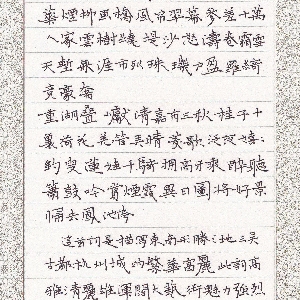 華煙柳画橋風帘翠幕參差十萬
人家雲樹繞堤沙怒濤卷霜雪
天塹無涯市列珠璣户盈羅綺
競豪奢
重湖疊巘清嘉有三秋桂子十
里荷花羌管弄晴菱歌泛夜嬉:
釣叟蓮娃千騎擁高牙乘醉聽
簫鼓吟賞煙霞異日圖將好景
歸去鳳池誇
這首詞是描寫東南形勝之地三吴
古都杭州城的繁華富麗此詞高
雅清麗雄渾闊大藝術魅力强烈